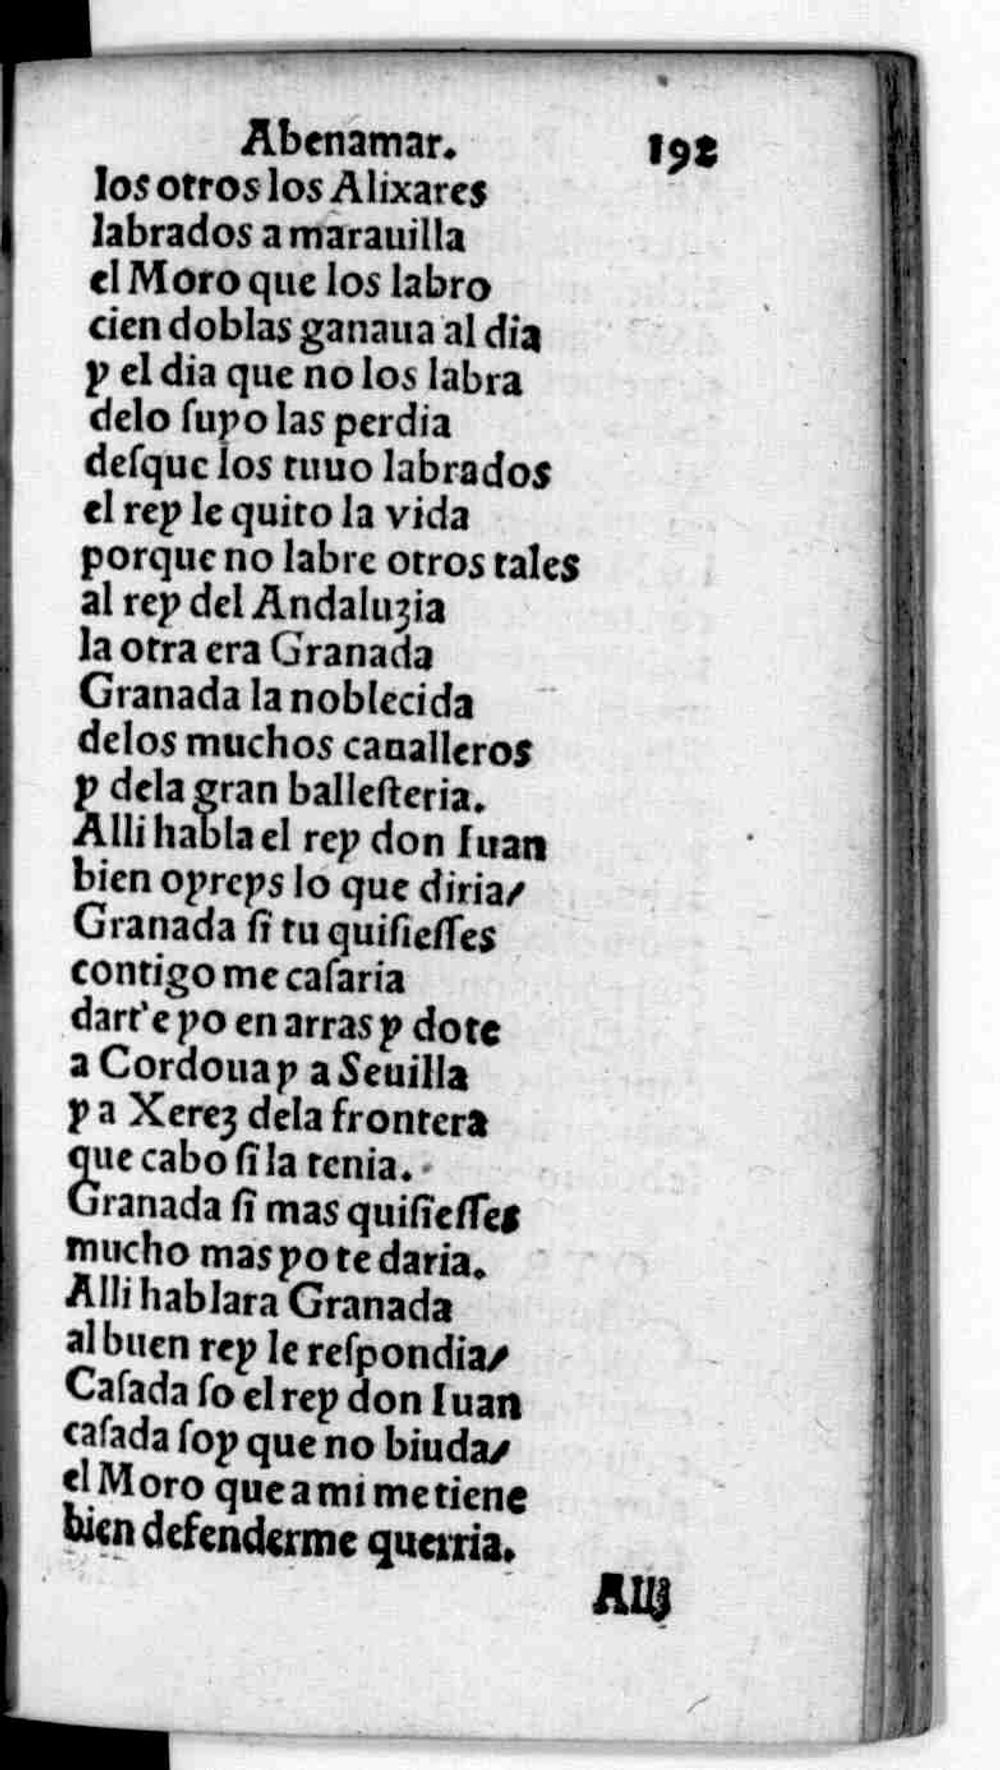 Abenamar. 192
los otros los Alixares
labrados a marauilla
el Moro que los labro
cien doblas ganaua al dia
y el dia que no los labra
delo ſuyo las perdia
deſque los tuuo labrados
el rey le quito la vida
porque no labre otros tales
al rey del Andaluzia
la otra era Granada
Granada la noblecida
delos muchos caualleros
y dela gran balleſteria.
Alli habla el rey don Iuan
bien oyreys lo que diria/
Granada ſi tu quiſieſſes
contigo me caſaria
dart'e yo en arras y dote
a Cordoua y a Seuilla
y a Xerez dela frontera
que cabo ſi la tenia.
Granada ſi mas quiſieſſes
mucho mas yo te daria.
Alli hablara Granada
al buen rey le reſpondia/
Caſada ſo el rey don Iuan
caſada ſoy que no biuda/
el Moro que a mi me tiene
bien defenderme querria.